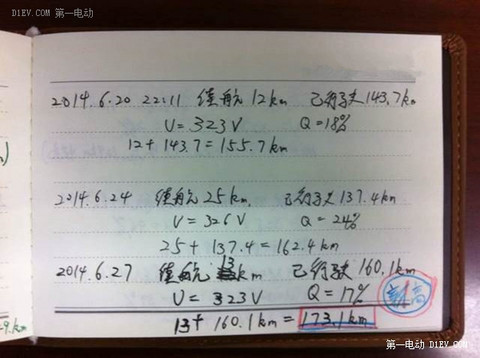 D1EV.COM 第一电动
2014.6.20 22:11 续航12km 已行驶143.7km
U=323V Q=18%
12+143.7=155.7km
2014.6.24 续航25km 已行驶137.4km
U=326V Q=24%
25+137.4=162.4km
2014.6.27 续航13km 已行驶160.1km
U=323V Q=17%
13+160.1km=173.1km
新高
第一电动 D1EV.COM